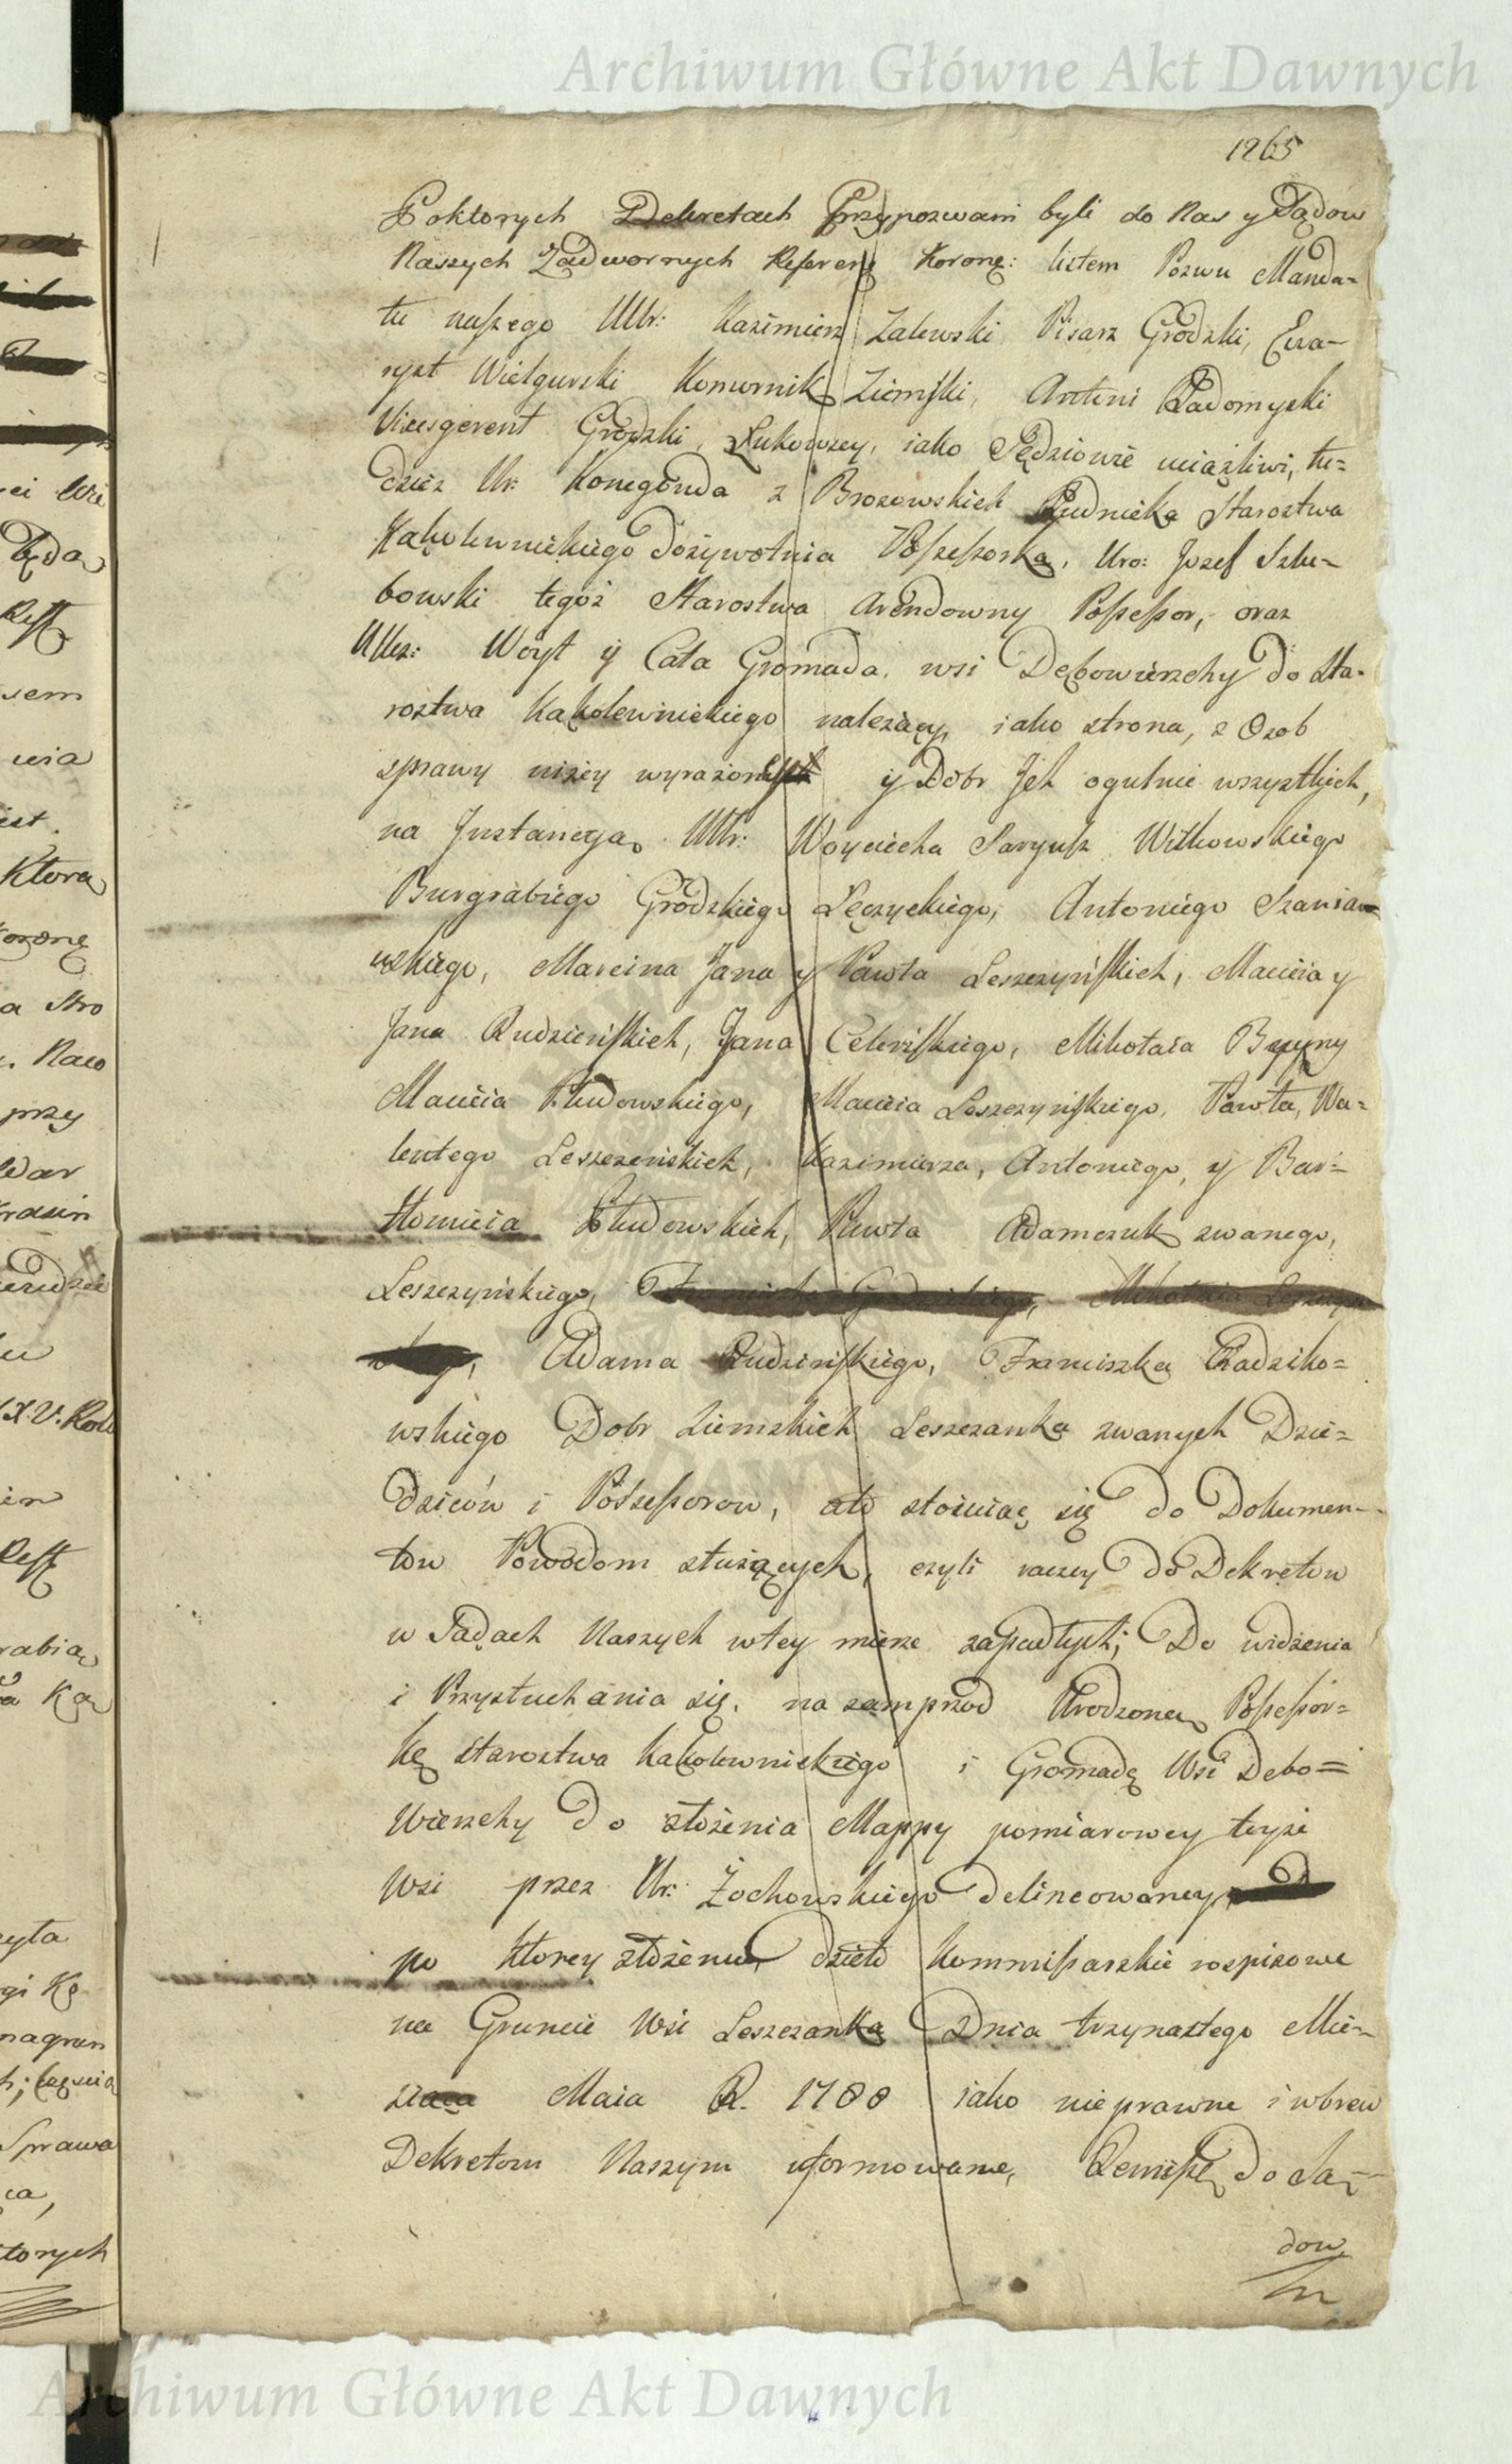 Archiwum Główne Akt Dawnych
1265
Poktorych Dekretach Przypozwani byli do Nas y Sądow
Naszych Zadwornych Referen: Koronę: listem Pozwu Manda=
tu naszego UUr: Kazimierz Zalewski Pisarz Grodzki, Ewa-
ryst Wielgurski Komornik Ziemski, Antoni Radomyski
Vicesgerent Grodzki Łukowscy, iako Sędziowie uciążliwi, tu=
dzież Ur: Konegunda z Brozowskich Rudnicka Starostwa
Kąkolewnickiego Dożywotnia Possessorka, Uro: Jozef Szlu=
bowski tegoż Starostwa Arendowny Possessor, oraz
Woyt y Cała Gromada wsi Dębowierzchy do Sta-
rostwa Kąkolewnickiego należący, iako strona, z Osob
sprawy niżey wyrażoney y Dobr Jch ogulnie wszystkich,
na Jnstancyą UUr: Woyciecha Saryusz Witkowskiego
Burgrabiego Grodzkiego Łęczyckiego, Antoniego Szaniaw=
wskiego, Marcina Jana y Pawła Leszczyńskich, Macieia y
Jana Rudzieńskich, Jana Celińskiego, Mikołaia Bryny
Macieia Płudowskiego, Macieia Leszczyńskiego, Pawła, Wa=
lentego Leszczeńskich, Kazimierza, Antoniego, y Bar=
tłomieia Płudowskich, Pawła Adamczuk zwanego,
Leszczyńskiego, Mikołaia
Adama Rudzińskiego, Franciszka Radziko=
wskiego Dobr Ziemskich Leszczanka zwanych Dzie=
dziców i Possessorow, ato stosuiąc się do Dokumen-
tow Powodom służących, czyli raczey do Dekretow
w Sądach Naszych wtey mierze zapadłych; Do widzenia
i Przysłuchania się, na samprzod Urodzoną Possessor=
kę Starostwa Kąkolewnickiego i Gromadę Wsi Debo=
wierzchy do złożenia Mappy pomiarowey teyże
Wsi przez Ur: Żochowskiego delineowaney,
po ktorey złożeniu, dzieło Kommissarskie rospisowe
na Gruncie Wsi Leszczanka Dnia trzynastego Mie-
siąca Maia R. 1788 iako nieprawne i wbrew
Dekretom Naszym uformowane, Remissę do Są-
dow
Archiwum Główne Akt Dawnych